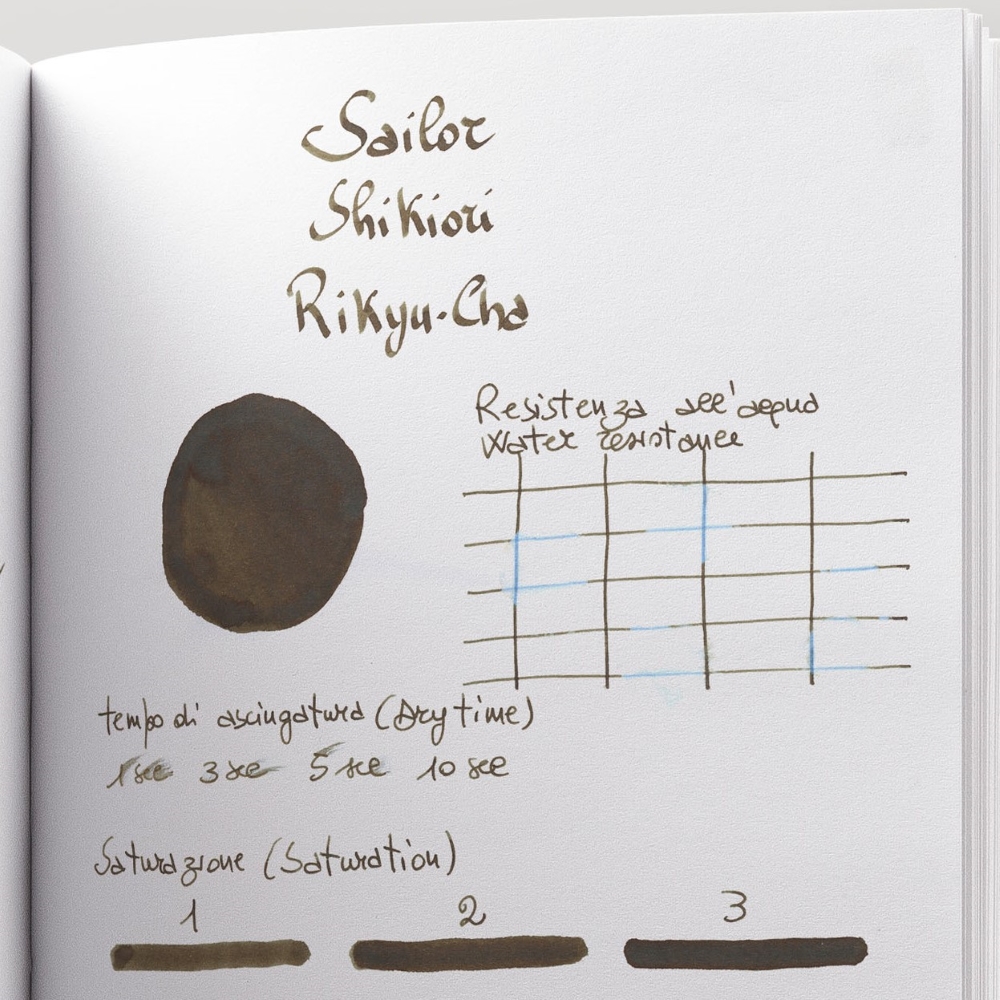 Sailor
Shikiori
Rikyu-Cha
Resistenza all'acqua
Water resistance
tempo di asciugatura (Dry time)
1 sec 3 sec 5 sec 10 sec
Saturazione (Saturation)
1 2 3